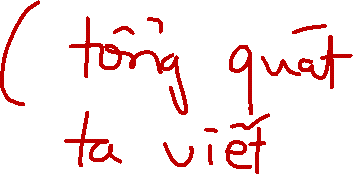 ( tổng quát
ta viết